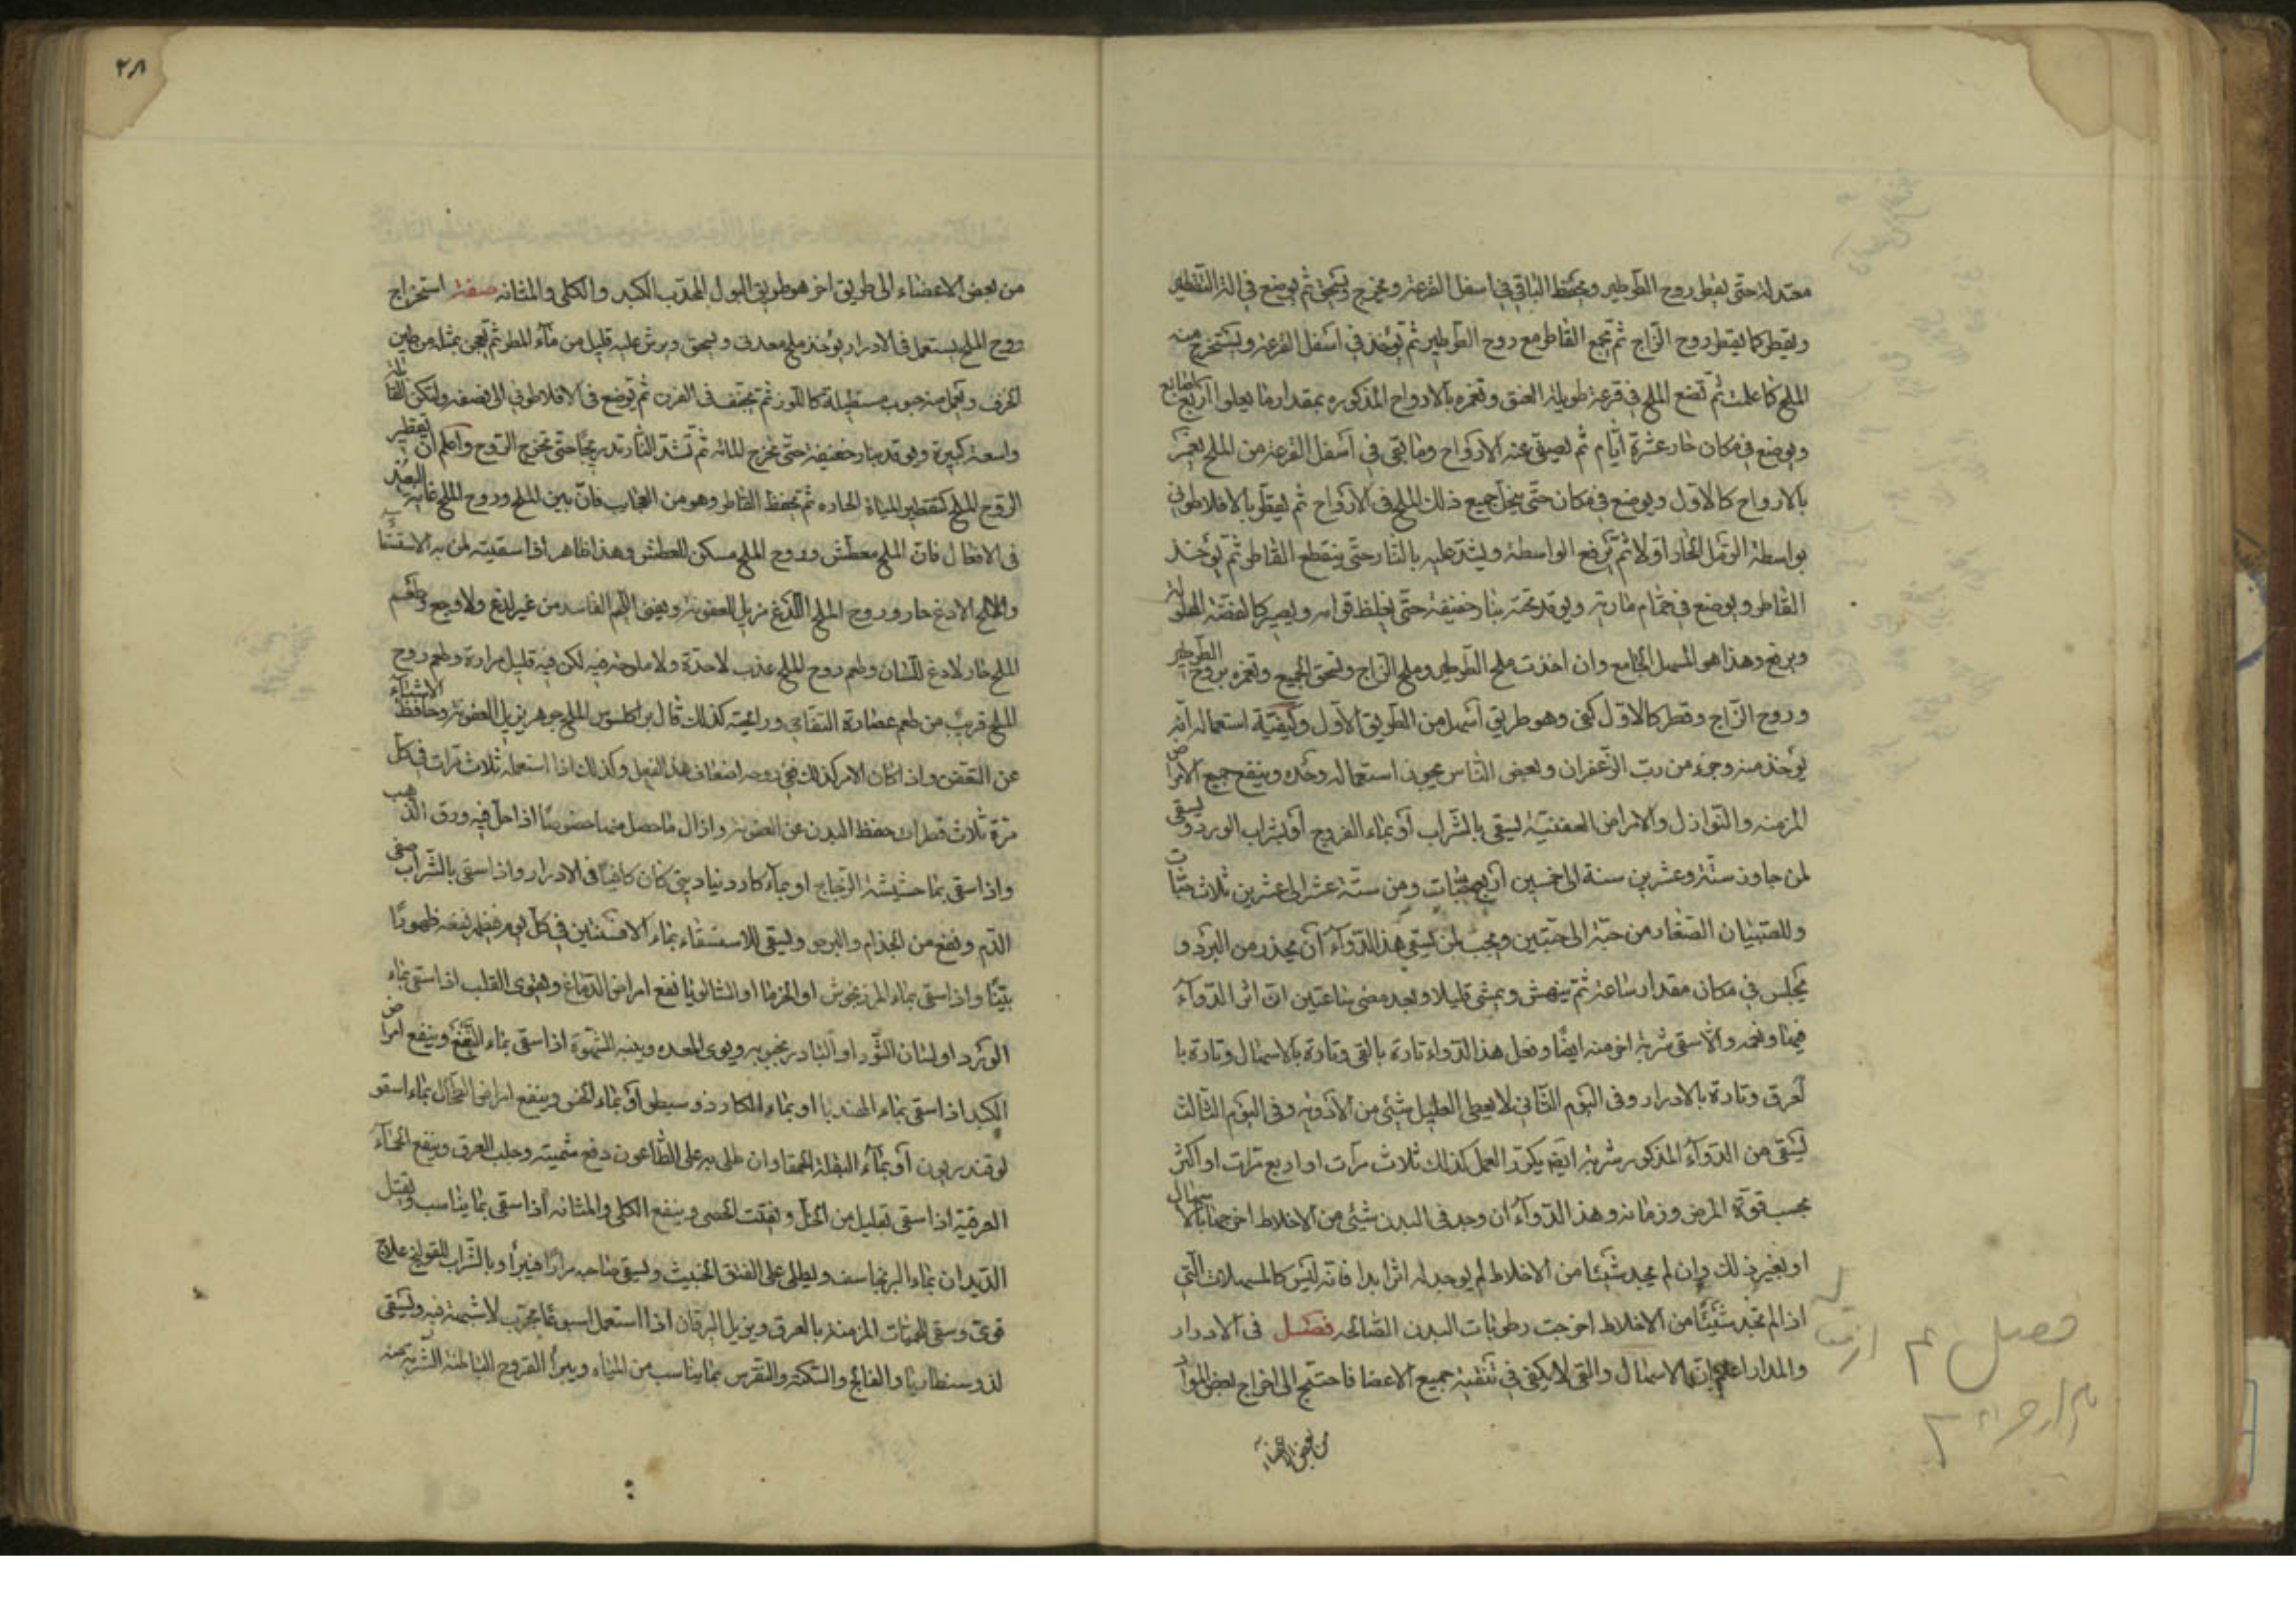 معتدلة حتى يقطر روح الطرطير ويحفظ الباقي في اسفل القرعة ويخرج ويسحق ثم يوضع في الة التقطير
ويقطر كما يقطر روح الزاج ثم يجمع القاطر مع روح الطرطير ثم يؤخذ في اسفل القرعة ويستخرج منه
الملح كما علمت ثم تضع الملح في قرعة طويلة العنق وتغمره بالارواح المذكوره بمقدار ما يعلوا اربع اصابع
ويوضع في مكان حار عشرة ايام ثم يصفى عنه الارواح وما بقى في اسفل القرعة من الملح يغمر
بالارواح كالاول ويوضع في مكان حتى ينحل جميع ذلك الملح في الارواح ثم يقطر بالافلاطوني
بواسطة الرمل الحار اولا ثم ترفع الواسطة ويشد عليه بالنار حتى ينقطع القاطر ثم يؤخذ
القاطر ويوضع في حمام مارية ويوقد تحته بنار خفيفة حتى يغلظ قوامه ويصير كالفضة المحلولة
ويرفع وهذا هو المسهل الجامع وان اخذت ملح الطرطير وملح الزاج وتسحق الجميع وتغمره بروح الطرطير
وروح الزاج وقطر كالاول كفى وهو طريق اسهل من الطريق الاول وكيفية استعماله انه
يؤخذ منه وجزء من رب الزعفران وبعض الناس يجود استعماله وحده وينفع جميع الامراض
المزمنه والنوازل والامراض العفنية يسقى بالشراب أو بماء الفروج او بشراب الورد ويسقى
لمن جاوز ستة وعشرين سنة الى خمسين اربع حبات ومن ستة عشر الى عشرين ثلاث حبات
وللصبيان الصغار من حبة الى حبتين ويجب لمن يسقى هذا الدواء أن يحذر من البرد و
يجلس في مكان مقدار ساعة ثم ينهض ويمشى قليلا وبعد مضى ساعتين ان اثر الدواء
فيها ونعمه والا سقى شربة اخر منه ايضا وفعل هذا الدواء تارة بالقى وتارة بالاسهال وتارة با
لعرق وتارة بالادرار وفى اليوم الثانى لا يعطى العليل شيئ من الادوية وفى اليوم الثالث
يسقى من الدواء المذكور شربة ايضا يكرر العمل كذلك ثلاث مرات او اربع مرات او اكثر
بحسب قوة المرض وزمانه وهذا الدواء ان وجد فى البدن شيئ من الاخلاط اخرجها بالاسهال
او بغير ذلك وان لم يجد شيئا من الاخلاط لم يوجد له اثرا بدا فانه ليس كالمسهلات التي
اذا لم تجد شيئا من الاخلاط اخرجت رطوبات البدن الصالحه فصل فى الادرار
والمدار اعلم ان الاسهال والقى لا يكفى في تنقية جميع الاعضا فاحتيج الى اخراج بعض المواد
من بعض الاعضاء
فصل
٢٨
من بعض الاعضاء الى طريق اخر هو طريق البول المحدب الكبد والكلى والمثانه صفة استخراج
روح الملح يستعمل فى الادرار يؤخذ ملح معدنى ويسحق ويرش عليه قليل من ماء المطر ثم يعجن بمثله من طين
الخزف ويعمل منه حبوب مستطيلة كاللوز ثم تجفف فى الفرن ثم توضع فى الافلاطوني الى نصفه ولتكن القابلة
واسعة كبيرة ويوقد بنار خفيفة حتى تخرج المائه ثم تشد النار تدريجا حتى تخرج الروح واعلم ان تقطير
الروح الملح كتقطير المياة الحاده ثم تحفظ القاطر وهو من العجايب فان بين الملح وروح الملح غاية البعد
فى الافعال فان الملح معطش وروح الملح مسكن للعطش وهذا ظاهر اذا سقيته لمن به الاستسقا
والملح لادغ حار وروح الملح اللادغ مزيل العفونة ويفنى اللحم الفاسد من غير لدغ ولا وجع وطعم
الملح حار لادغ للسان وطعم روح الملح عذب لا حدة ولا ملوحة فيه لكن فيه قليل مرارة وطعم روح
الملح قريب من طعم عصارة التفاحى ورائحته كذلك قال براكلسوس الملح جوهر يزيل العفونة وحافظ الاشياء
عن التعفن واذا كان الامر كذلك ففى روحه اضعاف هذا الفعل وكذلك اذا استعمله ثلاث مرات في كل
مرة ثلاث قطرات حفظ البدن عن العفونة وازال ما حصل منها خصوصا اذا حل فيه ورق الذهب
واذا سقى بماء حشيشة الزجاج او بماء كاردنياديتى كان كافيا فى الادرار واذا سقى بالشراب صفى
الدم ونفع من الجذام والبرص ويسقى للاستسقاء بماء الافسنتين فى كل يوم فيظهر نفعه ظهورا
بينا واذا سقى بماء المرزنجوش او الخزما او الشالويا نفع امراض الدماغ وهقوى القلب اذا سقى بماء
الورد او لسان الثور او البادرنجبويه ويقوى المعده وينبه الشهوة اذا سقى بماء النعنع وينفع امراض
الكبد اذا سقى بماء الهندبا او بماء الكاردوسيطو او بماء الخس وينفع امراض الطحال بماء اسقو
لوقندريون أو بماء البقلة الحمقا وان طلى به على الطاعون دفع سميته وجلب العرق وينفع الحماء
العرقية اذا سقى بقليل من الخل ويفتت الحصى وينفع الكلى والمثانه اذا سقى بما يناسب ويقتل
الديدان بماء البرنجاسف ويطلى على الفتق الخبيث ويسقى صاحبه مرارا فيبرأ وبالشراب للقولنج علاج
قوى وسقى للحميات المزمنة بالعرق ويزيل اليرقان اذا استعمل اسبوعا مجرب لا شبهة فيه ويسقى
لذوسنطاريا والفالج والسكتة والنقرس بما يناسب من المياه ويبرأ القروح الباطنة الشربة منه